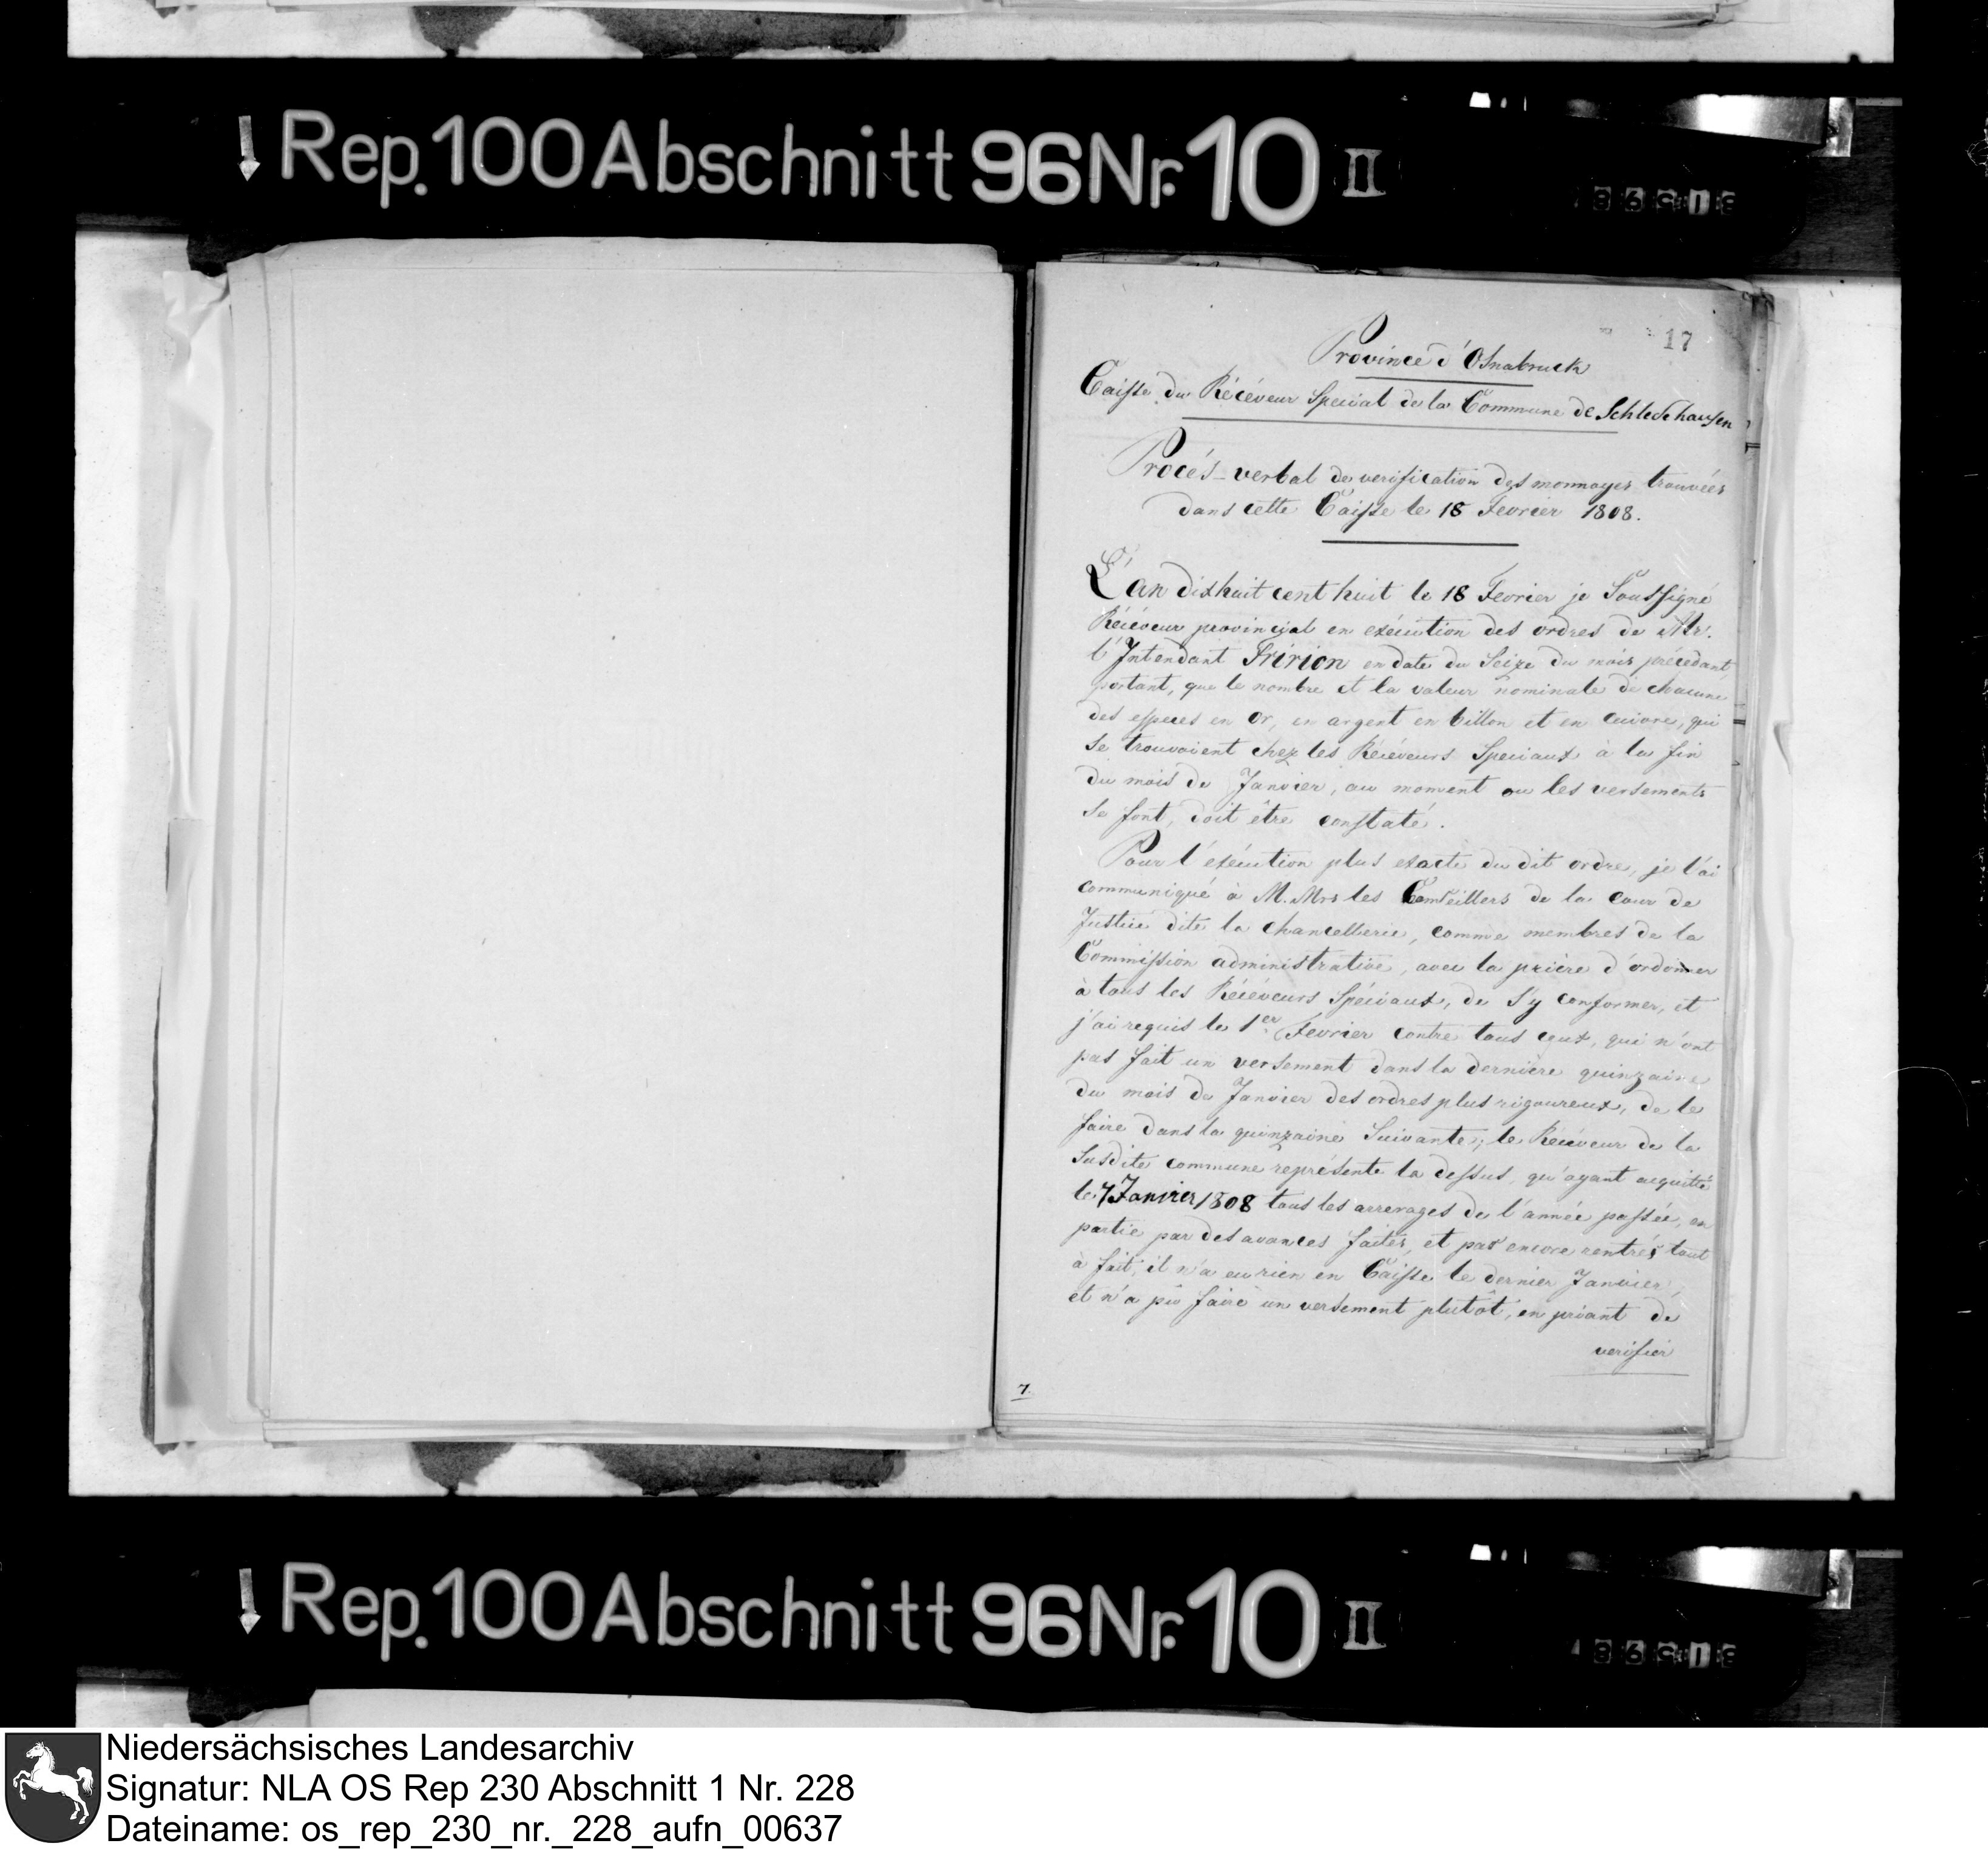 Rep. 100 Abschnitt 96 Nr. 10 II
17
Province d'Osnabruck
Caisse du Récéveur Special de la Commune de Schledehausen
Procés-verbal de verification des monnayes trouvées
dans cette Caisse le 18 Fevrier 1808.
L'an dixhuit cent huit le 18 Fevrier je Soussigné
Récéveur provincial en exécution des ordres de Mr.
l'Intendant Fririon en date du Seize du mois précedant
portant, que le nombre et la valeur nominale de chacune
des especes en or, en argent en billon et en cuivre, qui
se trouvoient chez les Récéveurs Speciaux à la fin
du mois de Janvier, au moment ou les versements
se font, doit être constaté.
Pour l'exécution plus exacte du dit ordre, je l'ai
communiqué à M. Mrs les Conseillers de la Cour de
Justice dite la chancellerie, comme membres de la
Commission administrative, avec la prière d'ordonner
à tous les Récéveurs Spéciaux, de s'y conformer, et
j'ai requis le 1er Fevrier contre tous ceux, qui n'ont
pas fait un versement dans la dernière quinzaine
du mois de Janvier des ordres plus rigoureux, de le
faire dans la quinzaine Suivante; le Récéveur de la
Susdite commune représente la dessus, qu'ayant acquitté
le 7 Janvier 1808 tous les arrerages de l'année passée, en
partie par des avances faites, et pas encore rentrés tout
à fait, il n'a eu rien en Caisse le dernier Janvier,
et n'a pû faire un versement plutôt, en priant de
verifier
7
Rep. 100 Abschnitt 96 Nr. 10 II
Niedersächsisches Landesarchiv
Signatur: NLA OS Rep 230 Abschnitt 1 Nr. 228
Dateiname: os_rep_230_nr._228_aufn_00637